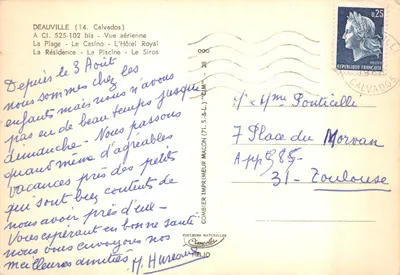 DEAUVILLE (14. Calvados)
A CI. 525-102 bis - Vue aérienne
La Plage - Le Casino - L'Hôtel Royal
La Résidence - La Piscine - Le Siros
Depuis le 3 Août
nous sommes chez les
enfants mais nous n'avons
pas eu de beau temps jusque
dimanche - Nous passons
quand même d'agréables
vacances près des petits
qui sont bien contents de
nous avoir près d'eux -
Vous espérant en bonne santé
nous vous envoyons nos
meilleures amitiés
COMBIER IMPRIMEUR MACON (71. S.-&-L.) "CIM"
COULEURS NATURELLES
Combier
HELIO
0,25
REPUBLIQUE FRANÇAISE
CALVADOS
Mr Mme Ponticelle
7 Place du Morvan
App 985-
31 - Toulouse